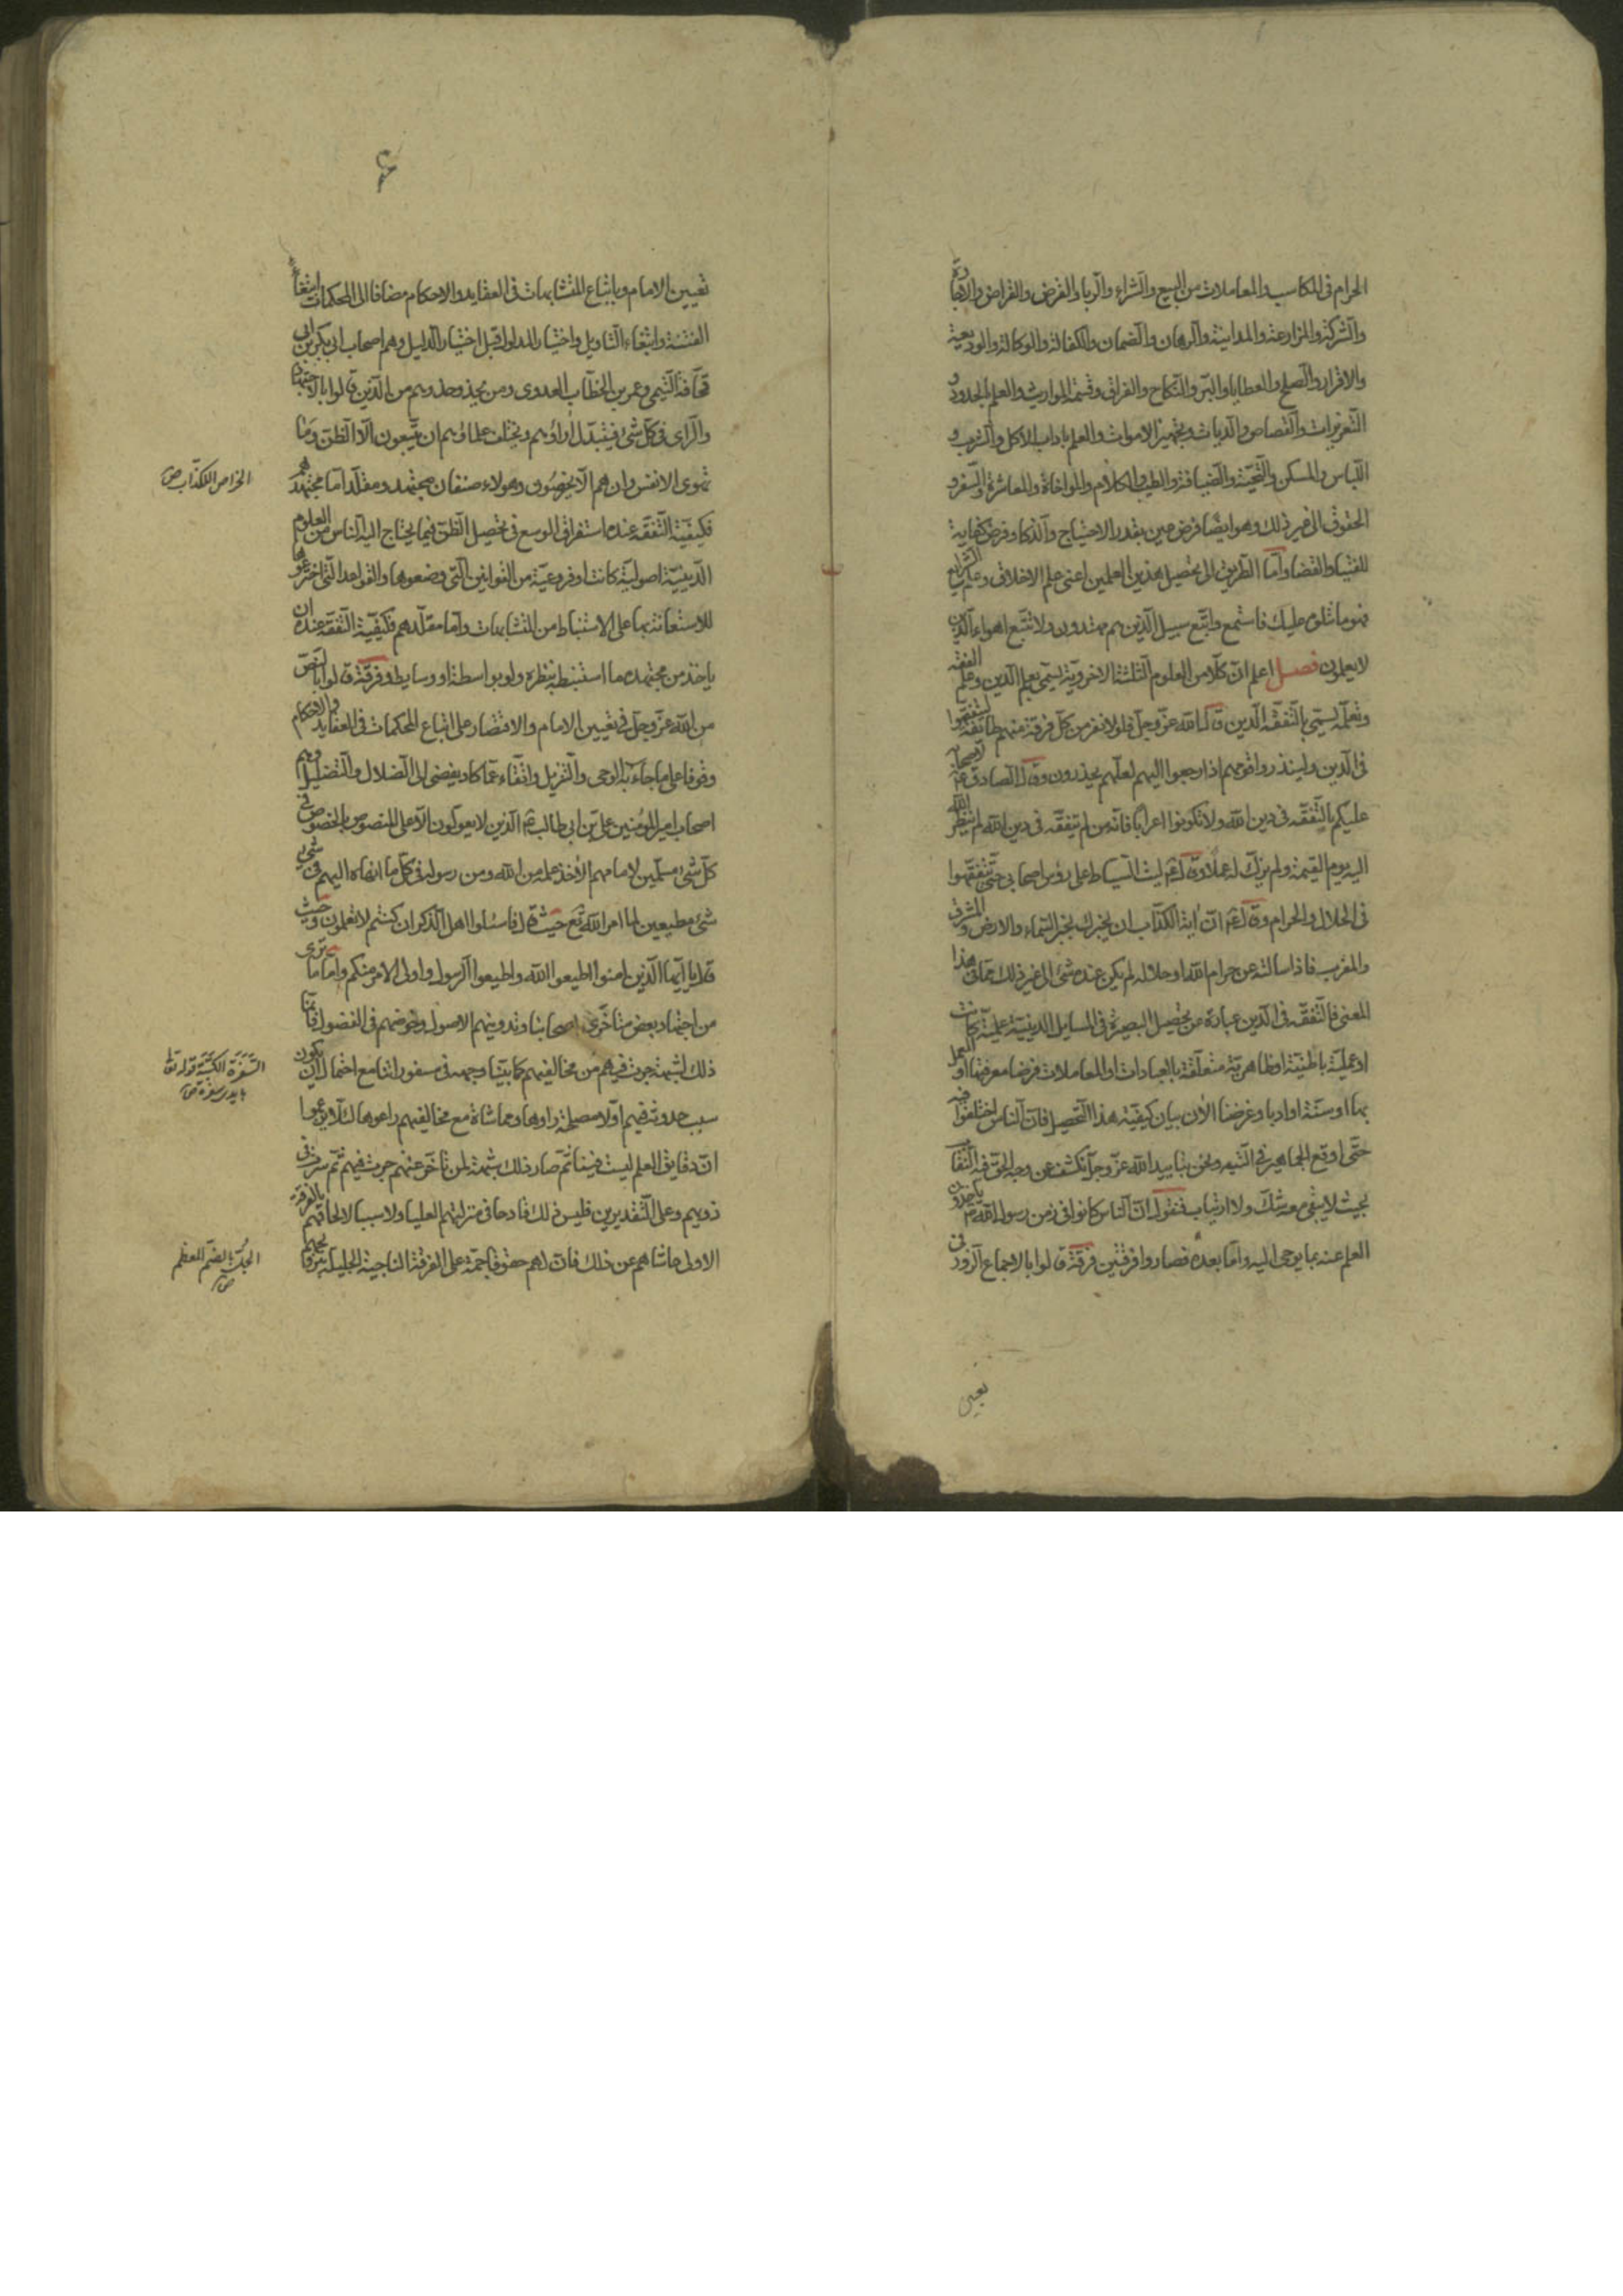 الحرام فى المكاسب والمعاملات من البيع والشراء والربا والقرض والقراض والاجارة
والشركة والمزارعة والمداينة والرهان والضمان والكفالة والوكالة والوديعة
والاقرار والصلح والعطايا والبر والنكاح والفراق وقسمة المواريث والعلم بالحدود و
التعزيرات والقصاص والديات وتجهيز الاموات والعلم باداب الاكل والشرب و
اللباس والمسكن والتحية والضيافة والطيب والكلام والمواخاة والمعاشرة والسفر و
الحقوق الى غير ذلك وهو ايضا فرض عين بقدر الاحتياج والذكا وفرض كفاية
للفتيا والقضا واما الطريق الى تحصيل هذين العلمين اعنى علم الاخلاق وعلم الشرايع
فهو ما نتلوه عليك فاستمع واتبع سبيل الذين هم مهتدون ولا تتبع اهواء الذين
لا يعلمون فصل اعلم ان كلا من العلوم الثلثة الاخروية يسمى بعلم الدين وعلم الفقه
وتعلمه يسمى بالتفقه الدين قال الله عز وجل فلولا نفر من كل فرقة منهم طائفة ليتفقهوا
فى الدين ولينذروا قومهم اذا رجعوا اليهم لعلهم يحذرون وقال الصادق ع لاصحابه
عليكم بالتفقه فى دين الله ولا تكونوا اعرابا فانه من لم يتفقه فى دين الله لم ينظر الله
اليه يوم القيمة ولم يزك له عملا وقال ع ليت السياط على رؤس اصحابى حتى يتفقهوا
فى الحلال والحرام وقال ع ان اية الكذاب ان يخبرك بخبر السماء والارض والمشرق
والمغرب فاذا سالته عن حرام الله او حلاله لم يكن عنده شئ الى غير ذلك مما فى هذا
المعنى فالتفقه فى الدين عبارة من تحصيل البصيرة فى المسايل الدينية علمية كانت
او عملية باطنية او ظاهرية متعلقة بالعبادات او المعاملات فرضا معرفتها او العمل
بها او سنة او ادبا وغرضنا الان بيان كيفية هذا التحصيل فان الناس اختلفوا فيه
حتى اوقع الجماهير فى التيه ونحن بتاييد الله عز وجل نكشف عن وجه الحق فيه النقاب
بحيث لا يبقى معه شك ولا ارتياب فنقول ان الناس كانوا فى زمن رسول الله ص ياخذون
العلم عنه بما يوحى اليه واما بعده فصاروا فرقتين فرقة قالوا بالاجماع الزور فى
يعيى
۶
تعيين الامام وباتباع المتشابهات فى العقايد والاحكام مضافا الى المحكمات ابتغاء
الفتنة وابتغاء التاويل واختيار المدلول قبل اختيار الدليل وهم اصحاب ابى بكر بن ابى
قحافة التيمى وعمر بن الخطاب العدوى ومن يحذو حذوهم من الذين قالوا بالاجتهاد
والراى فى كل شئ فيتبدل اراؤهم ويختلف علماؤهم ان يتبعون الا الظن وما
تهوى الانفس وان هم الا يخرصون وهولاء صنفان مجتهد ومقلد اما مجتهدهم
فكيفية التفقه عنده استفراق الوسع فى تحصيل الظن فيما يحتاج اليه الناس من العلوم
الدينية اصولية كانت او فروعية من القوانين التى وضعوها والقواعد التى اخترعوها
للاستعانة بها على الاستنباط من المتشابهات واما مقلدهم فكيفية التفقه عنده ان
ياخذ من مجتهده ما استنبطه بنظره ولو بواسطة او وسايط وفرقة قالوا بالنص
من الله عز وجل فى تعيين الامام والاقتصار على اتباع المحكمات فى العقايد والاحكام
وقوفا على ما جاء به الوحى والتنزيل واتقاء عما كاد يفضى الى الضلال والتضليل وهم
اصحاب امير المؤمنين على بن ابى طالب ع الذين لا يعولون الا على المنصوص بالخصوص فى
كل شئ مسلمين لامامهم الاخذ علمه من الله ومن رسوله فى كل ما انهاه اليهم فى شئ
شئ مطيعين لما امر الله تع حيث قال فاسئلوا اهل الذكر ان كنتم لا تعلمون وحيث
قال يا ايها الذين امنوا اطيعوا الله واطيعوا الرسول واولى الامر منكم واما ما ترى
من اجتهاد بعض متاخرى اصحابنا وتدوينهم الاصول وخوضهم فى الفضول فانما
ذلك لشبهة جرت فيهم من مخالفيهم كما بينا وجهه فى سفورنا مع احتمال ان يكون
سبب حدوثه فيهم اولا مصلحة راوها ومماشاة مع مخالفيهم راعوها لئلا يزعموا
ان دقايق العلم ليست فينا ثم صار ذلك شبهة لمن تاخر عنهم جرت فيهم ثم سرت فى
ذويهم وعلى التقديرين فليس ذلك قادحا فى منزلتهم العليا ولا سببا لالحاقهم بالفرقة
الاولى حاشاهم عن ذلك فان لهم حقوقا جمة على الفرقة الناجية الجليلة بترويجهم
الخراص الكذاب ص
السفرة الكتبة قوله تعالى
بايدى سفرة ص
الجل بالضم المعظم
ص